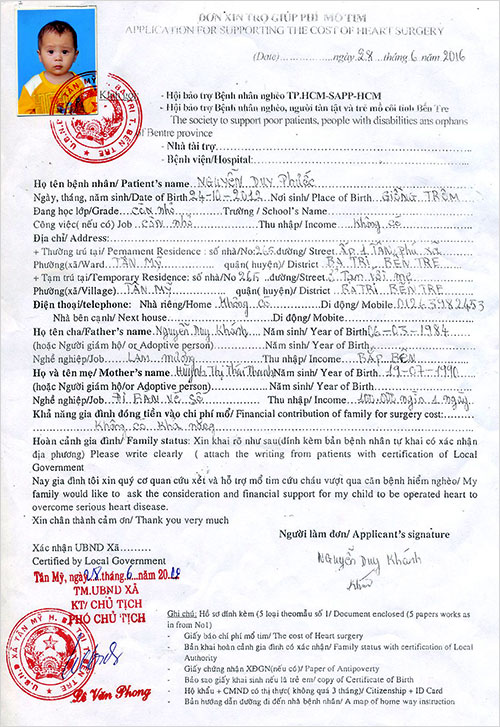 ĐƠN XIN TRỢ GIÚP PHÍ MỔ TIM
APPLICATION FOR SUPPORTING THE COST OF HEART SURGERY
(Date)..............ngày 28 tháng 6 năm 2016
- Hội bảo trợ Bệnh nhân nghèo TP.HCM-SAPP-HCM
- Hội bảo trợ Bệnh nhân nghèo, người tàn tật và trẻ mồ côi tỉnh Bến Tre
The society to support poor patients, people with disabilities ans orphans
of Bentre province
- Nhà tài trợ
- Bệnh viện/Hospital:
Họ tên bệnh nhân/ Patient's name NGUYỄN DUY PHƯỚC
Ngày, tháng, năm sinh/Date of Birth 24-10-2012 Nơi sinh/ Place of Birth GIỒNG TRÔM
Đang học lớp/Grade CÒN NHỎ Trường / School's Name
Công việc( nếu có) / Job CÒN NHỎ Thu nhập/ Income Không có
Địa chỉ/ Address:
+ Thường trú tại/ Permanent Residence: số nhà/No: 265 đường/ Street ẤP 1 TÂN PHÚ XÃ
Phường(xã/Ward TÂN MỸ quận( huyện)/ District BA TRI, BẾN TRE
+ Tạm trú tại/Temporary Residence: số nhà/No 265 đường/Street
Phường(xã/Village) TÂN MỸ quận( huyện)/ District BATRI BẾN TRE
Điện thoại/telephone: Nhà riêng/Home Không có Di động/ Mobile 01263982453
Nhà bên cạnh/ Next house Di động/ Mobite
Họ tên cha/Father's name Nguyễn Duy Khánh Năm sinh/ Year of Birth 06-03-1984
(hoặc Người giám hộ/ or Adoptive person) Năm sinh/ Year of Birth
Nghề nghiệp/Job LÀM MƯỚNG Thu nhập/ Income BẤP BÊN
Họ và tên mẹ/ Mother's name Huỳnh Thị Thu Thanh Năm sinh/ Year of Birth 19-07-1990
(hoặc Người giám hộ/ or Adoptive person) Năm sinh/ Year of Birth
Nghề nghiệp/Job ĐI BÁN VÉ SỐ Thu nhập/ Income 100.000 ngìn 1 ngày
Khả năng gia đình đóng tiền vào chi phí mổ / Financial contribution of family for surgery cost:
Không có khả năng
Hoàn cảnh gia đình/ Family status: Xin khai rõ như sau(đính kèm bản bệnh nhân tự khai có xác nhận
địa phương) Please write clearly ( attach the writing from patients with certification of Local
Government
Nay gia đình tôi xin quý cơ quan cứu xét và hỗ trợ mổ tim cứu cháu vượt qua căn bệnh hiểm nghèo/ My
family would like to ask the consideration and financial support for my child to be operated heart to
overcome serious heart disease.
Xin chân thành cảm ơn/ Thank you very much
Người làm đơn/ Applicant's signature
Nguyễn Duy Khánh
Xác nhận UBND Xã
Certified by Local Government
Tân Mỹ, ngày 28 tháng 6 năm 20
TM.UBND XÃ
KT/ CHỦ TỊCH
PHÓ CHỦ TỊCH
Lê Văn Phong
Ghi chú: Hồ sơ đính kèm (5 loại theomẫu số 1/ Document enclosed (5 papers works as
in from No1)
- Giấy báo chi phí mổ tim/ The cost of Heart surgery
- Bản khai hoàn cảnh gia đình có xác nhận/ Family status with certification of Local
Authority
- Giấy chứng nhận XĐGN(nếu có)/ Paper of Antipoverty
- Bảo sao giấy khai sinh nếu là trẻ em/ copy of Certificate of Birth
- Hộ khẩu + CMND có thị thực( không quá 3 tháng)/ Citizenship + ID Card
- Bản hướng dẫn đường đi đến nhà bệnh nhân/ A map of home way instruction